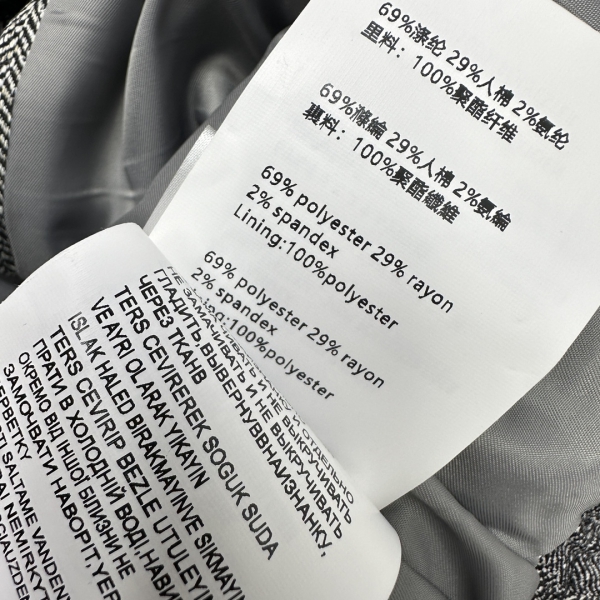 69%涤纶 29%人棉 2%氨纶
里料：100%聚酯纤维
69%滌綸 29%人棉 2%氨綸
裏料：100%聚酯纖維
69% polyester 29% rayon
2% spandex
Lining:100%polyester
69% polyester 29% rayon
2% spandex
100%polyester
НЕ ЗАМАЧИВАТЬ И НЕ ВЫКРУЧИВАТЬ
ГЛАДИТЬ ВЫВЕРНУВВНАИЗНАНКУ,
ЧЕРЕЗ ТКАНЬ
TERS CEVREREK SOGUK SUDA
VE AYRI OLARAK YIKAYIN
ISLAK HALED BIRAKMAYINVE SIKMAYIN
TERS CEVIRIP BEZLE UTULEYI
ПРАТИ В ХОЛОДНІЙ ВОДІ,НАВИ
ОКРЕМО ВІД ІНШОЇ БІЛИЗНИ НЕ
ЗАМОЧВАТИ НАВОРІТ,ЧЕР
СЕРВЕТКУ
SALTAME VANDEN
NEMIRKYT